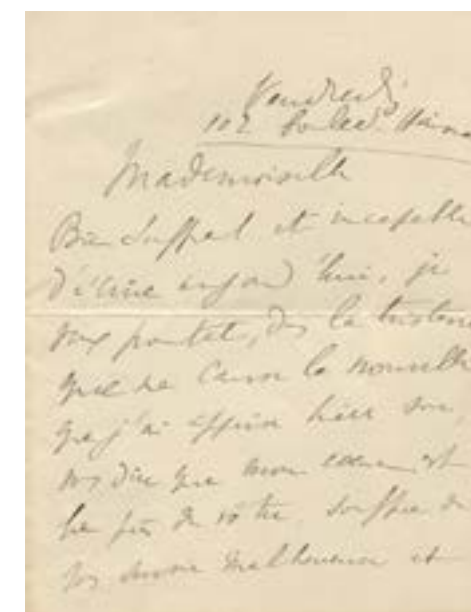 Vendredi
102 Boulevd. Haussma
Mademoiselle
Bien souffrant et incapable
d'écrire aujourd'hui, je
veux pourtant, dans la tristesse
que me cause la nouvelle
que j'ai apprise hier soir,
vous dire que mon coeur est
bien près du vôtre, souffre de
vous savoir malheureuse et